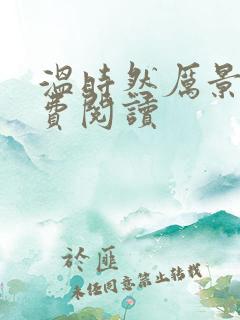 温時然厲景
費閱讀
於匪
未经同意禁止转载